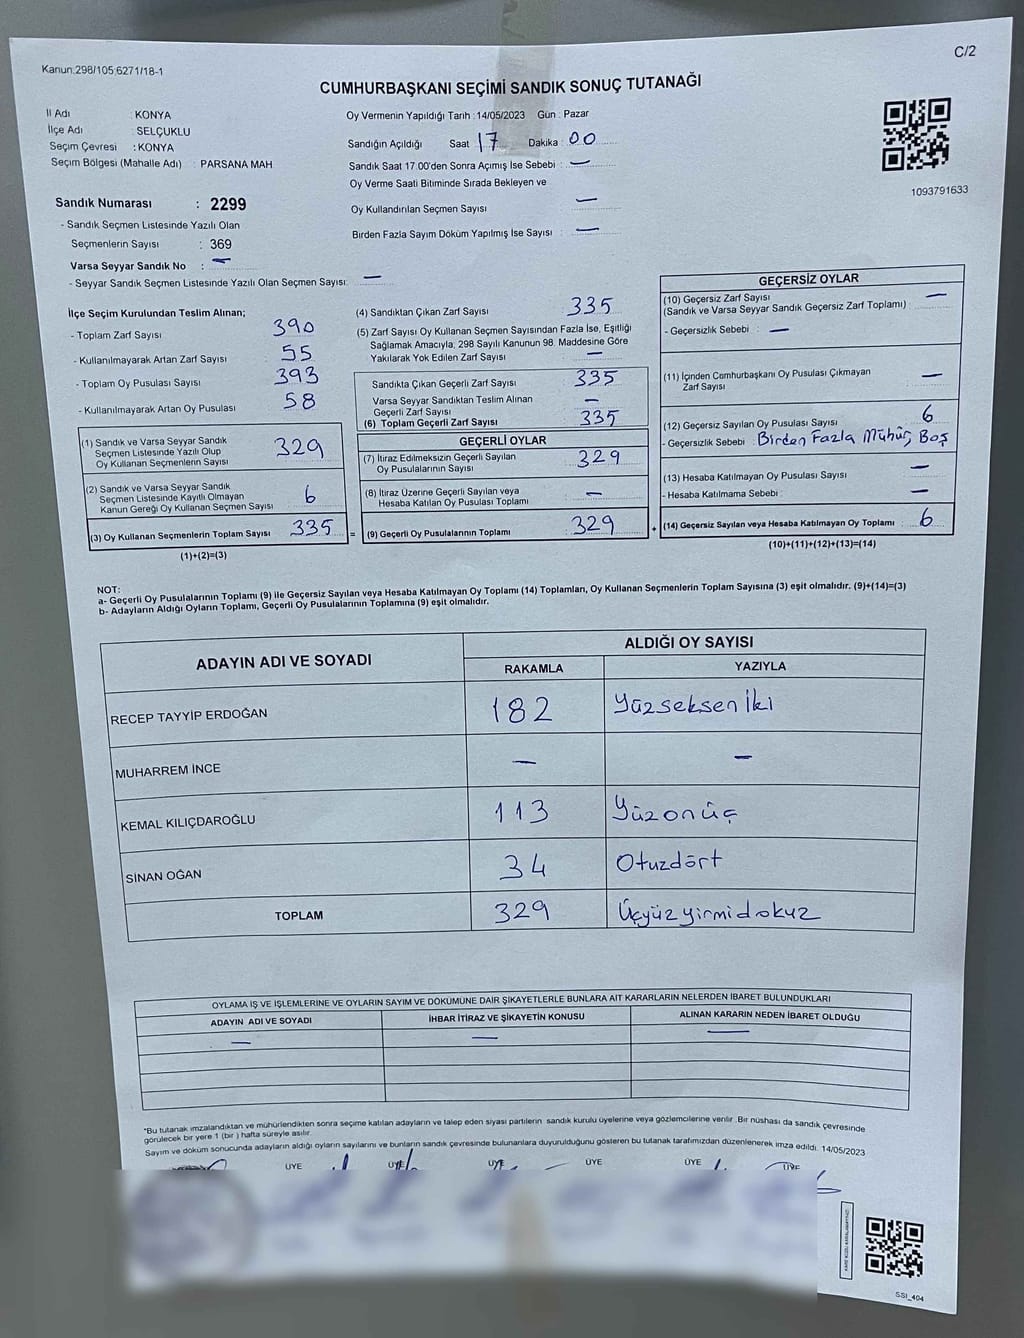 C/2
Kanun:298/105;6271/18-1
CUMHURBAŞKANI SEÇİMİ SANDIK SONUÇ TUTANAĞI
İl Adı : KONYA
İlçe Adı : SELÇUKLU
Seçim Çevresi : KONYA
Seçim Bölgesi (Mahalle Adı) : PARSANA MAH
Sandık Numarası : 2299
- Sandık Seçmen Listesinde Yazılı Olan
Seçmenlerin Sayısı : 369
Varsa Seyyar Sandık No : —
- Seyyar Sandık Seçmen Listesinde Yazılı Olan Seçmen Sayısı: —
Oy Vermenin Yapıldığı Tarih : 14/05/2023 Gün : Pazar
Sandığın Açıldığı Saat 17 Dakika : 00
Sandık Saat 17:00'den Sonra Açımış İse Sebebi : —
Oy Verme Saati Bitiminde Sırada Bekleyen ve
Oy Kullandırılan Seçmen Sayısı —
Birden Fazla Sayım Döküm Yapılmış İse Sayısı : —
1093791633
İlçe Seçim Kurulundan Teslim Alınan;
- Toplam Zarf Sayısı 390
- Kullanılmayarak Artan Zarf Sayısı 55
- Toplam Oy Pusulası Sayısı 393
- Kullanılmayarak Artan Oy Pusulası 58
(1) Sandık ve Varsa Seyyar Sandık
Seçmen Listesinde Yazılı Olup
Oy Kullanan Seçmenlerin Sayısı 329
(2) Sandık ve Varsa Seyyar Sandık
Seçmen Listesinde Kayıtlı Olmayan
Kanun Gereği Oy Kullanan Seçmen Sayısı 6
(3) Oy Kullanan Seçmenlerin Toplam Sayısı 335
(1)+(2)=(3)
(4) Sandıktan Çıkan Zarf Sayısı 335
(5) Zarf Sayısı Oy Kullanan Seçmen Sayısından Fazla İse, Eşitliği
Sağlamak Amacıyla; 298 Sayılı Kanunun 98. Maddesine Göre
Yakılarak Yok Edilen Zarf Sayısı —
Sandıkta Çıkan Geçerli Zarf Sayısı 335
Varsa Seyyar Sandıktan Teslim Alınan
Geçerli Zarf Sayısı —
(6) Toplam Geçerli Zarf Sayısı 335
GEÇERLİ OYLAR
(7) İtiraz Edilmeksizin Geçerli Sayılan
Oy Pusulalarının Sayısı 329
(8) İtiraz Üzerine Geçerli Sayılan veya
Hesaba Katılan Oy Pusulası Toplamı —
= (9) Geçerli Oy Pusulalarının Toplamı 329
GEÇERSİZ OYLAR
(10) Geçersiz Zarf Sayısı —
(Sandık ve Varsa Seyyar Sandık Geçersiz Zarf Toplamı) :
- Geçersizlik Sebebi : —
(11) İçinden Cumhurbaşkanı Oy Pusulası Çıkmayan
Zarf Sayısı —
(12) Geçersiz Sayılan Oy Pusulası Sayısı 6
- Geçersizlik Sebebi : Birden Fazla Mühür, Boş
(13) Hesaba Katılmayan Oy Pusulası Sayısı —
- Hesaba Katılmama Sebebi : —
+ (14) Geçersiz Sayılan veya Hesaba Katılmayan Oy Toplamı 6
(10)+(11)+(12)+(13)=(14)
NOT:
a- Geçerli Oy Pusulalarının Toplamı (9) ile Geçersiz Sayılan veya Hesaba Katılmayan Oy Toplamı (14) Toplamları, Oy Kullanan Seçmenlerin Toplam Sayısına (3) eşit olmalıdır. (9)+(14)=(3)
b- Adayların Aldığı Oyların Toplamı, Geçerli Oy Pusulalarının Toplamına (9) eşit olmalıdır.
ADAYIN ADI VE SOYADI ALDIĞI OY SAYISI
RAKAMLA YAZIYLA
RECEP TAYYİP ERDOĞAN 182 Yüzsekseniki
MUHARREM İNCE — —
KEMAL KILIÇDAROĞLU 113 Yüzonüç
SİNAN OĞAN 34 Otuzdört
TOPLAM 329 Üçyüzyirmidokuz
OYLAMA İŞ VE İŞLEMLERİNE VE OYLARIN SAYIM VE DÖKÜMÜNE DAİR ŞİKAYETLERLE BUNLARA AİT KARARLARIN NELERDEN İBARET BULUNDUKLARI
ADAYIN ADI VE SOYADI İHBAR İTİRAZ VE ŞİKAYETİN KONUSU ALINAN KARARIN NEDEN İBARET OLDUĞU
— — —
*Bu tutanak imzalandıktan ve mühürlendikten sonra seçime katılan adayların ve talep eden siyasi partilerin sandık kurulu üyelerine veya gözlemcilerine verilir. Bir nüshası da sandık çevresinde
görülecek bir yere 1 (bir) hafta süreyle asılır.
Sayım ve döküm sonucunda adayların aldığı oyların sayılarını ve bunların sandık çevresinde bulunanlara duyurulduğunu gösteren bu tutanak tarafımızdan düzenlenerek imza edildi. 14/05/2023
ÜYE ÜYE ÜYE ÜYE ÜYE ÜYE
SSI_404